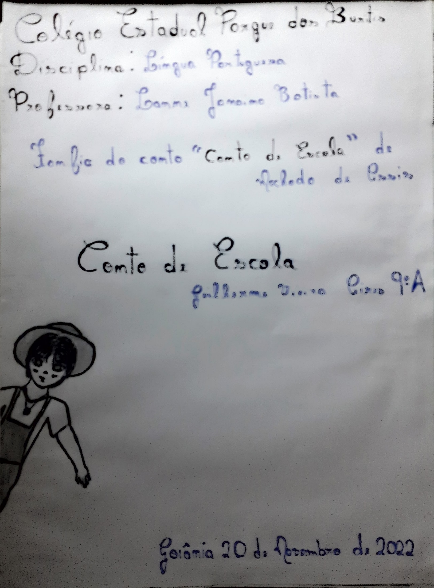 Colégio Estadual Parque dos Buritis
Disciplina: Língua Portuguesa
Professora: Batista
do conto "Conto de Escola" de
Machado de Assis
Conto de Escola
Guilherme 9ºA
Goiânia 20 de Novembro de 2022